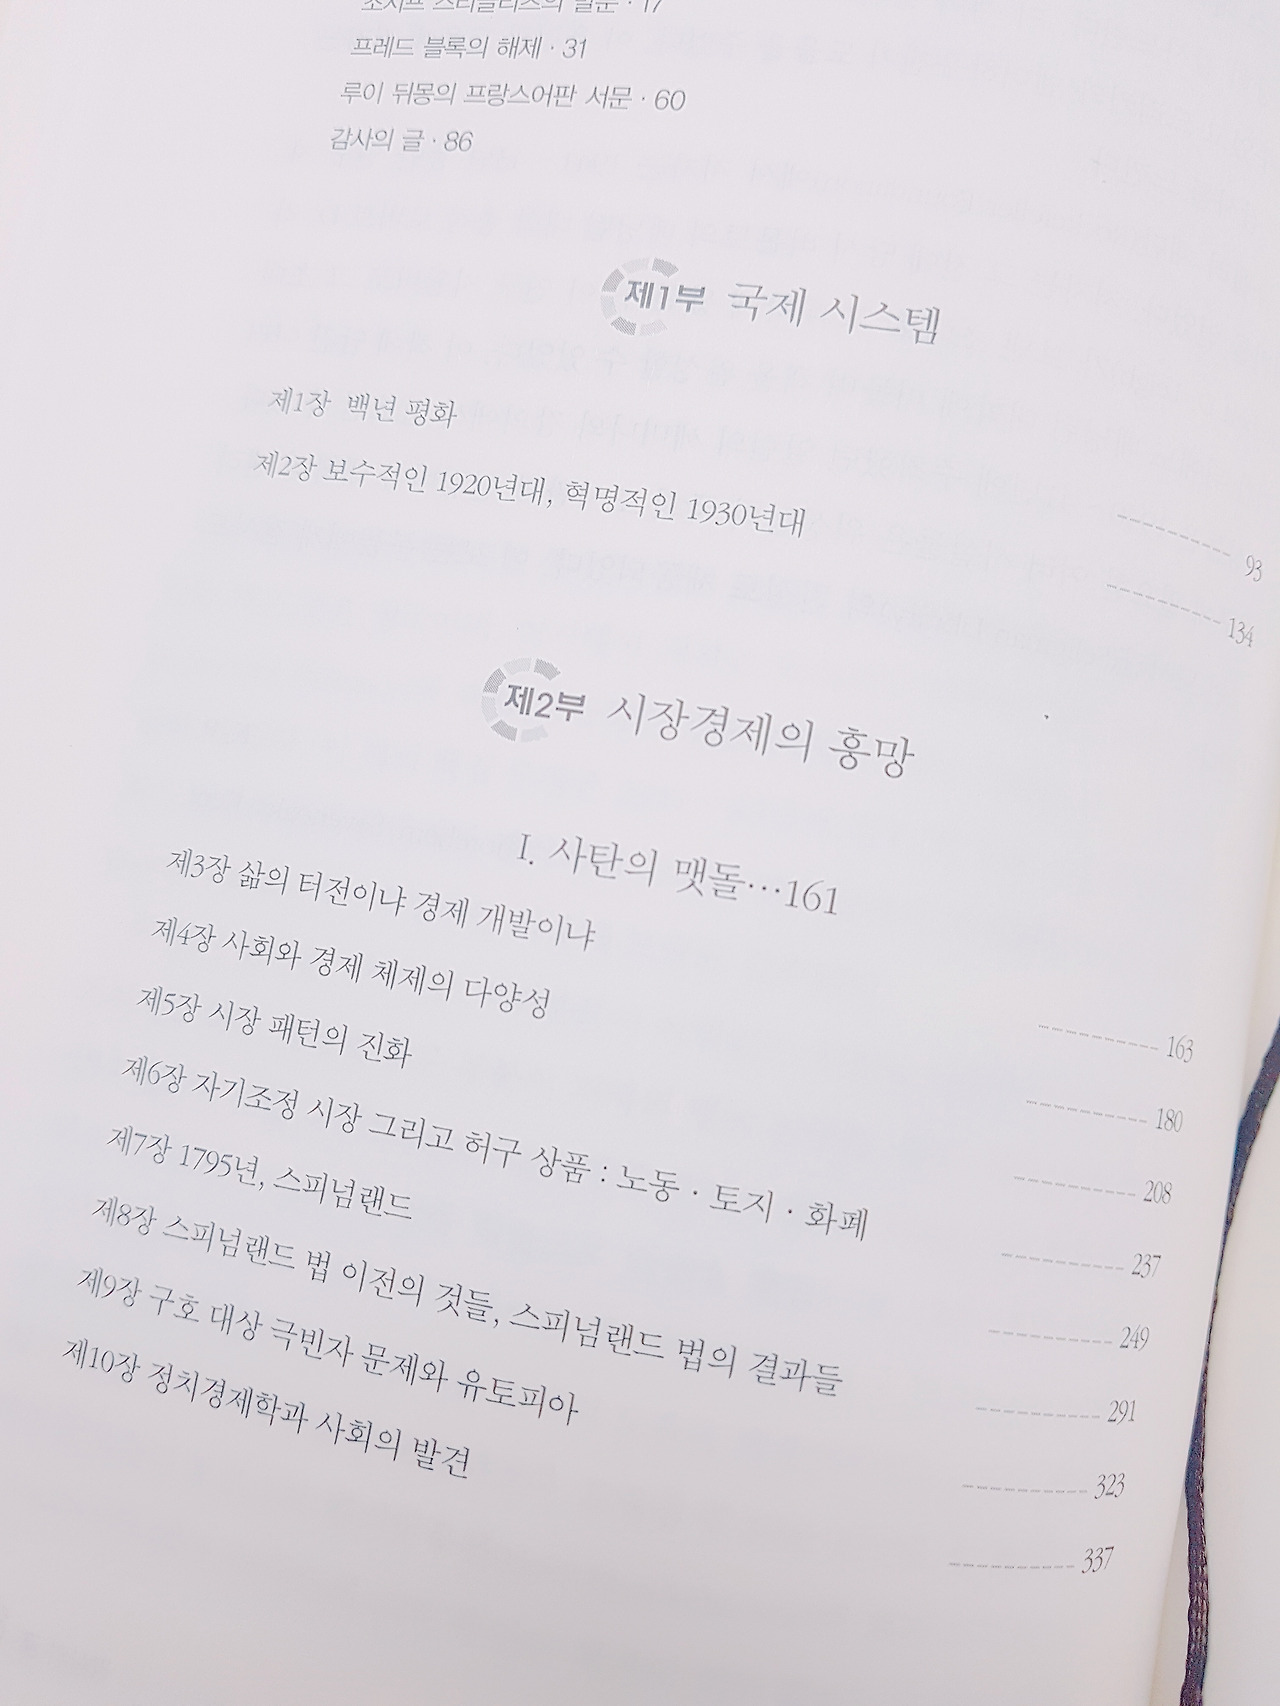 조지프 스티글리츠의 발문 · 17
프레드 블록의 해제 · 31
루이 뒤몽의 프랑스어판 서문 · 60
감사의 글 · 86
제1부 국제 시스템
제1장 백년 평화 93
제2장 보수적인 1920년대, 혁명적인 1930년대 134
제2부 시장경제의 흥망
I. 사탄의 맷돌…161
제3장 삶의 터전이냐 경제 개발이냐 163
제4장 사회와 경제 체제의 다양성 180
제5장 시장 패턴의 진화 208
제6장 자기조정 시장 그리고 허구 상품 : 노동 · 토지 · 화폐 237
제7장 1795년, 스피넘랜드 249
제8장 스피넘랜드 법 이전의 것들, 스피넘랜드 법의 결과들 291
제9장 구호 대상 극빈자 문제와 유토피아 323
제10장 정치경제학과 사회의 발견 337